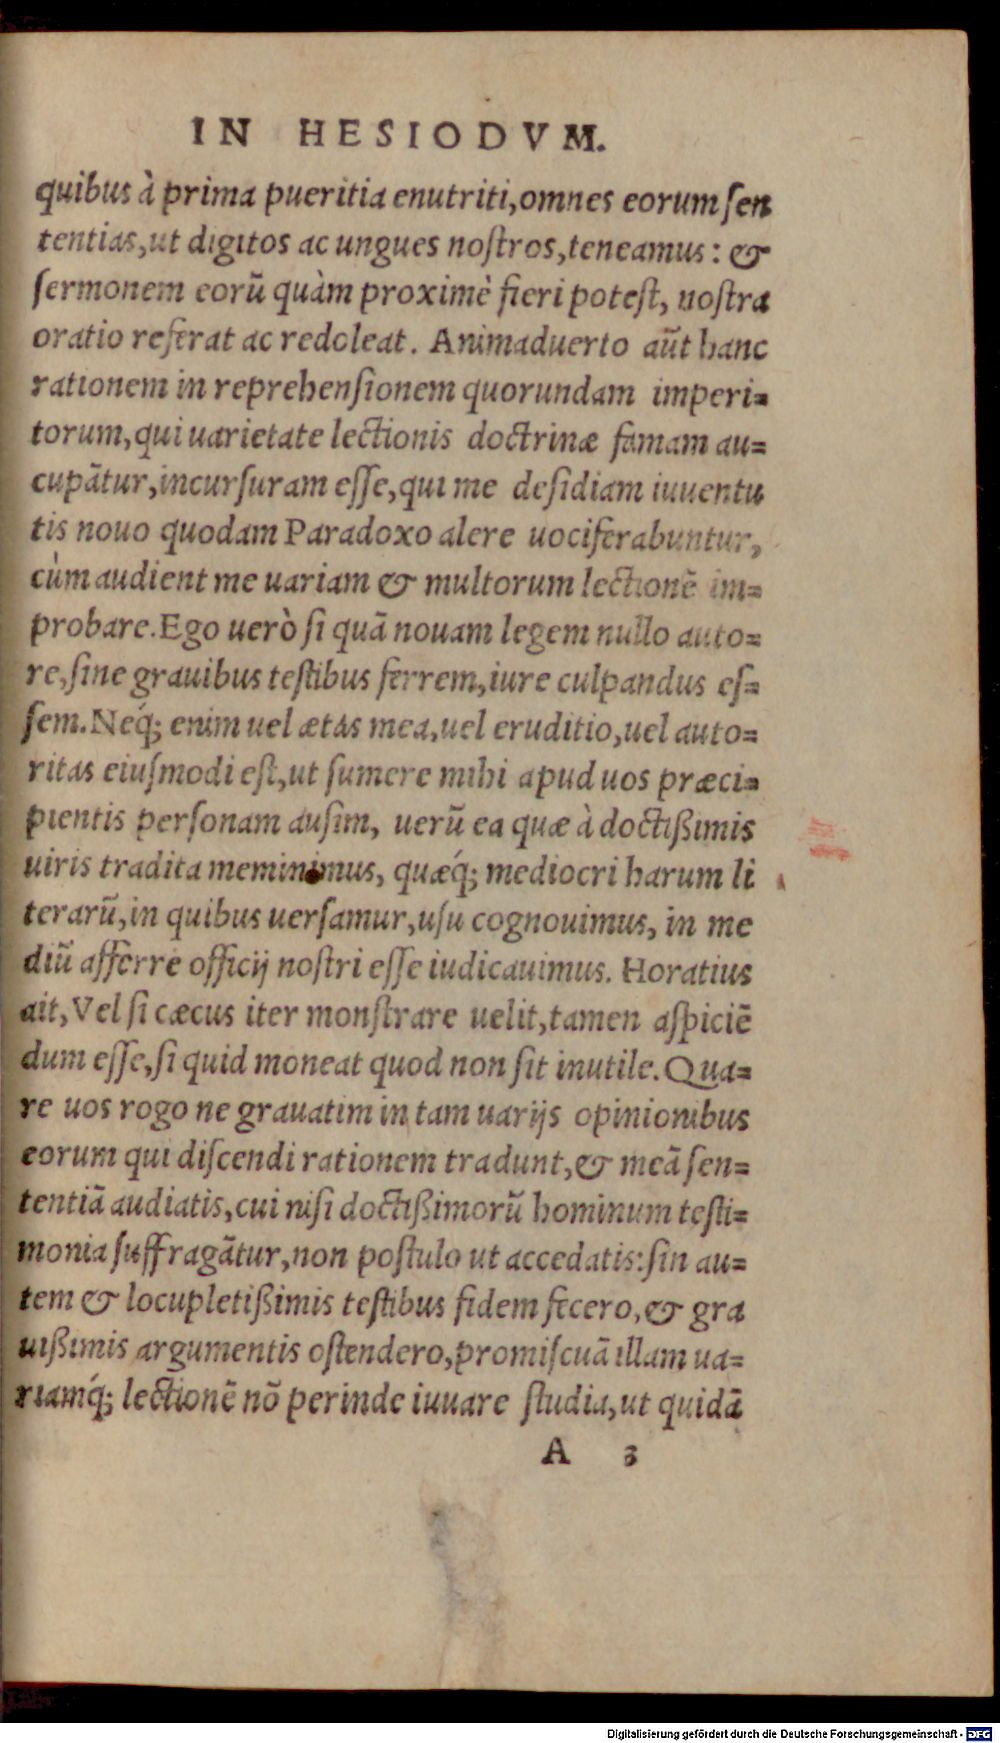 IN HESIODVM.
quibus à prima pueritia enutriti, omnes eorum ſen
tentias, ut digitos ac ungues noſtros, teneamus: &
ſermonem eorũ quàm proximè fieri poteſt, noſtra
oratio referat ac redoleat. Animaduerto aũt hanc
rationem in reprehenſionem quorundam imperi=
torum, qui uarietate lectionis doctrinæ famam au=
cupãtur, incurſuram eſſe, qui me deſidiam iuuentu
tis nouo quodam Paradoxo alere uociferabuntur,
cùm audient me uariam & multorum lectionẽ im=
probare. Ego uerò ſi quã nouam legem nullo auto=
re, ſine grauibus teſtibus ferrem, iure culpandus eſ=
ſem. Neq́; enim uel ætas mea, uel eruditio, uel auto=
ritas eiuſmodi eſt, ut ſumere mihi apud uos præci=
pientis perſonam auſim, uerũ ea quæ à doctißimis
uiris tradita meminimus, quæq́; mediocri harum li
terarũ, in quibus uerſamur, uſu cognouimus, in me
diũ afferre officij noſtri eſſe iudicauimus. Horatius
ait, Vel ſi cæcus iter monſtrare uelit, tamen aſpiciẽ
dum eſſe, ſi quid moneat quod non ſit inutile. Qua=
re uos rogo ne grauatim in tam uarijs opinionibus
eorum qui diſcendi rationem tradunt, & meã ſen=
tentiã audiatis, cui niſi doctißimorũ hominum teſti=
monia ſuffragãtur, non poſtulo ut accedatis: ſin au=
tem & locupletißimis teſtibus fidem fecero, & gra
uißimis argumentis oſtendero, promiſcuã illam ua=
riamq́; lectionẽ nõ perinde iuuare ſtudia, ut quidã
A 3
Digitalisierung gefördert durch die Deutsche Forschungsgemeinschaft - DFG